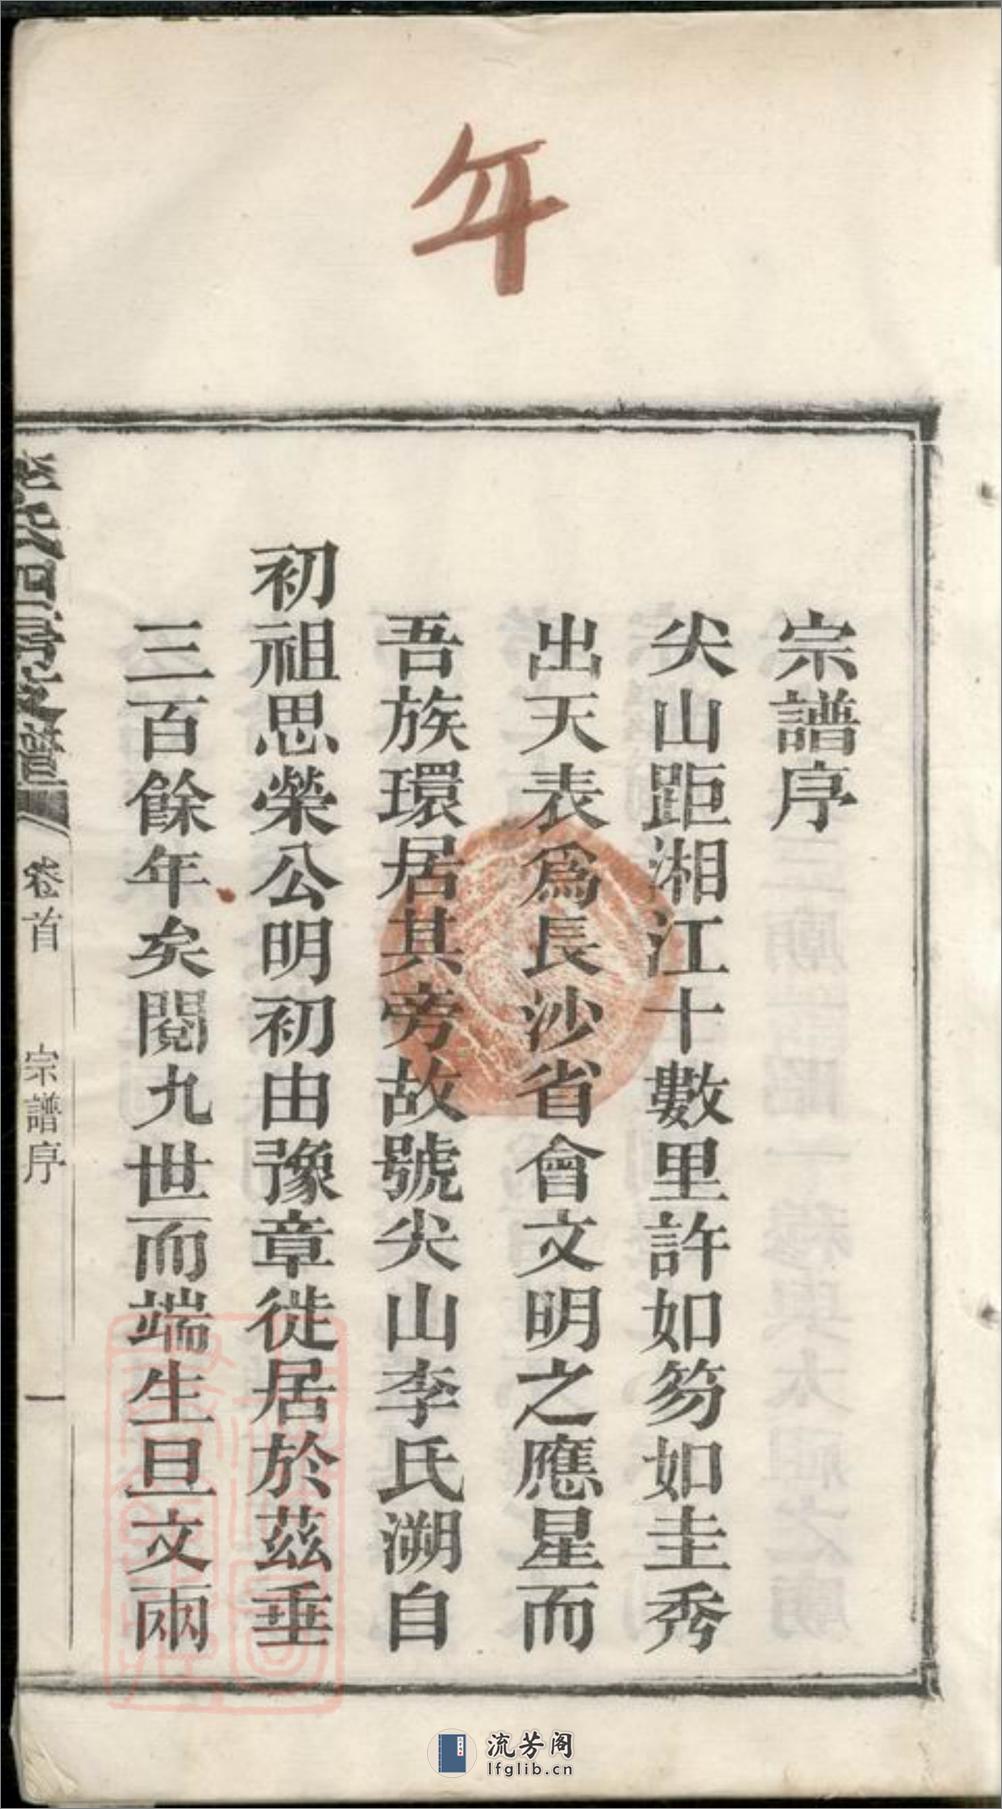 年
宗譜序
尖山距湘江十數里許如笏如圭秀
出天表爲長沙省會文明之應星而
吾族環居其旁故號尖山李氏溯自
初祖思榮公明初由豫章徙居於茲垂
三百餘年矣閱九世而端生旦文兩
李氏四房支譜
卷首
宗譜序
一
流芳阁
lfglib.cn